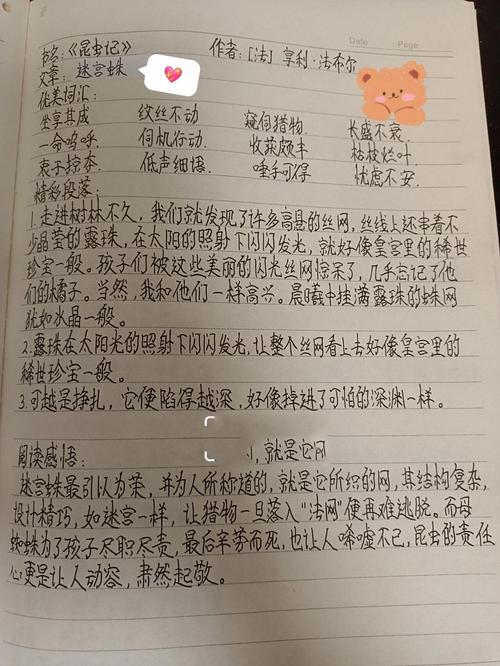 Date Page
书名:《昆虫记》 作者:[法]亨利·法布尔
文章: 迷宫蛛
优美词汇:
坐享其成 纹丝不动 窥伺猎物. 长盛不衰.
一命呜呼. 伺机行动. 收获颇丰 枯枝烂叶.
衷于掠夺. 低声细语. 唾手可得 忧虑不安.
精彩段落.
1.走进树林不久,我们就发现了许多高悬的丝网,丝线上还串着不
少晶莹的露珠,在太阳的照射下闪闪发光,就好像皇宫里的稀世
珍宝一般。孩子们被这些美丽的闪光丝网惊呆了,几乎忘记了他
们的橘子。当然,我和他们一样高兴。晨曦中挂满露珠的蛛网
犹如水晶一般。
2.露珠在太阳光的照射下闪闪发光,让整个丝网看上去好像皇宫里的
稀世珍宝一般。
3.可越是挣扎,它便陷得越深,好像掉进了可怕的深渊一样。
,就是它网
阅读感悟:
迷宫蛛最引以为荣,并为人所称道的,就是它所织的网,其结构复杂,
设计精巧,如迷宫一样,让猎物一旦落入“法网”便再难逃脱。而母
蜘蛛为了孩子尽职尽责,最后辛劳而死,也让人唏嘘不已,昆虫的责任
心更是让人动容,肃然起敬。